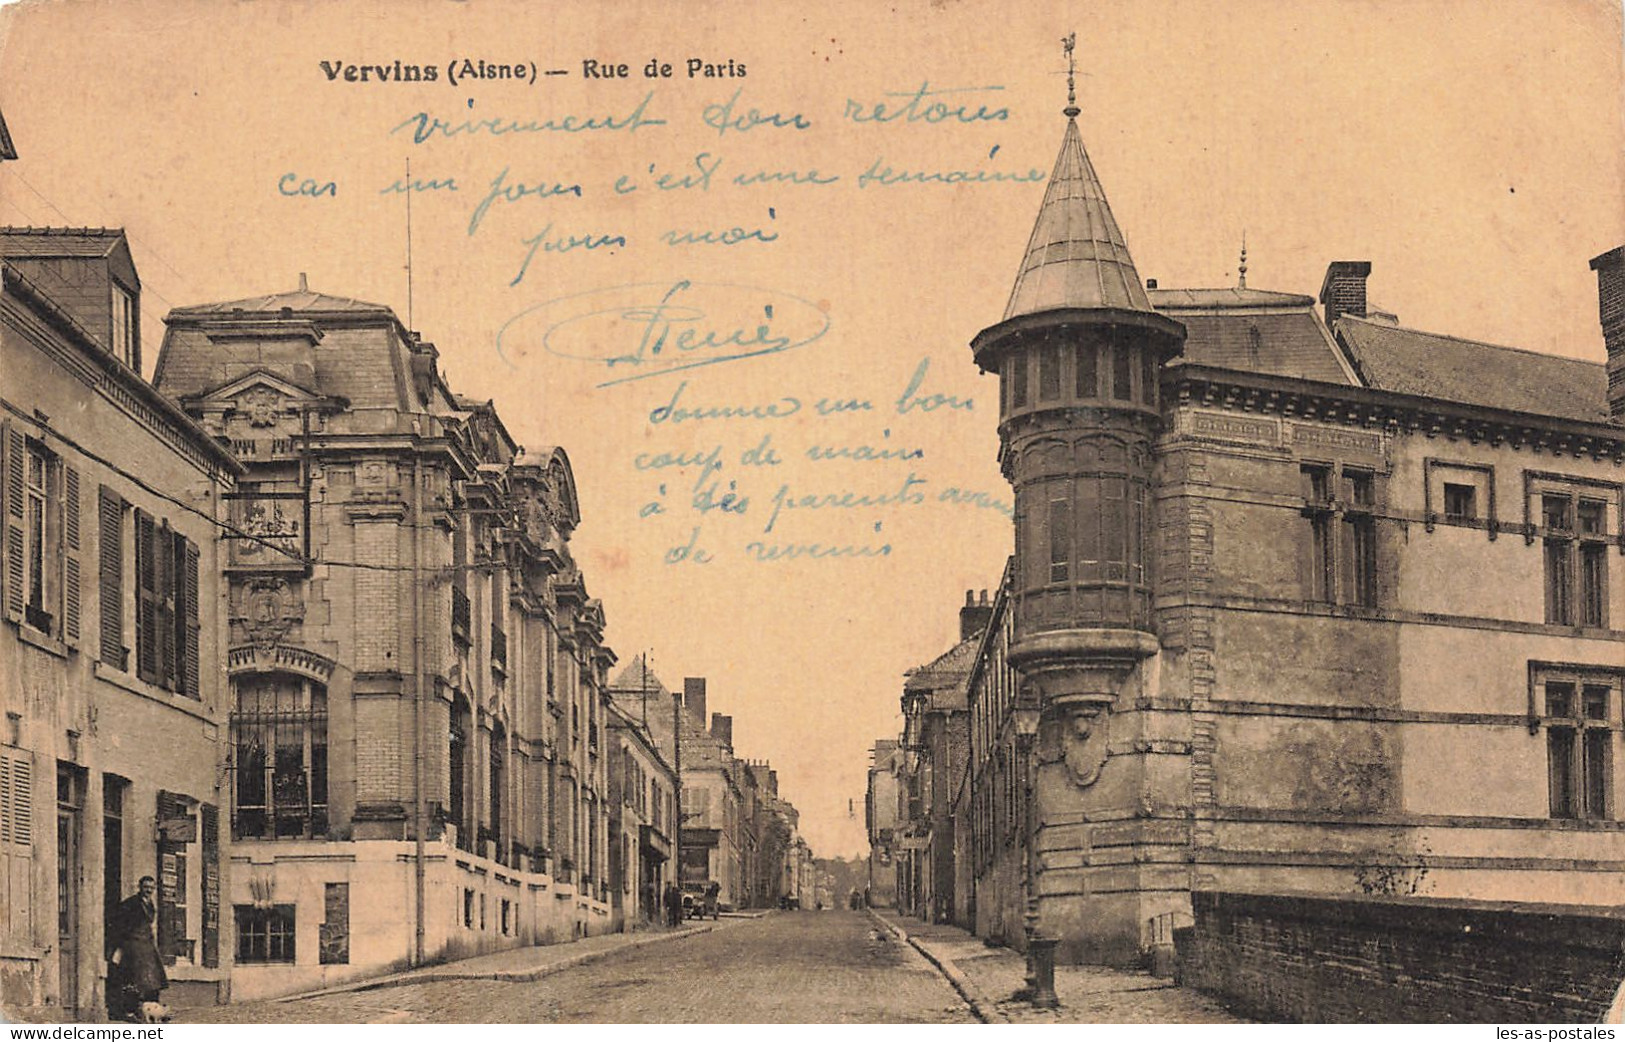 Vervins (Aisne) — Rue de Paris
vivement ton retour
car un jour c'est une semaine
pour moi
donne un bon
coup de main
à tes parents avant
de revenir
www.delcampe.net
les-as-postales